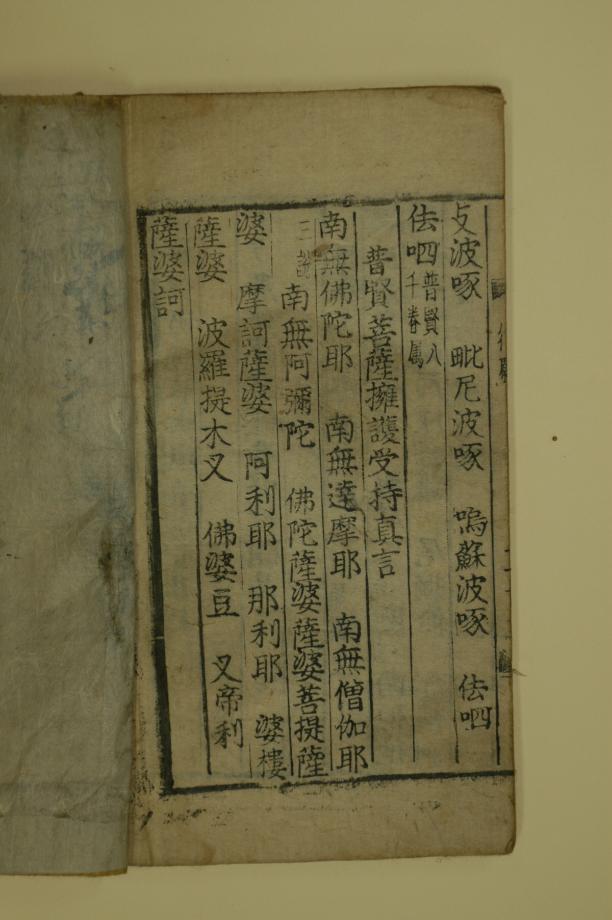 攴波啄　毗尼波啄　嗚蘇波啄　佉呬
佉呬普賢八千眷属
普賢菩薩擁護受持真言
南無佛陀耶　南無達摩耶　南無僧伽耶
三說　南無阿彌陀　佛陀薩婆薩婆菩提薩
婆　摩訶薩婆　阿利耶　那利耶　婆樓
薩婆　波羅提木叉　佛婆豆　叉帝利
薩婆訶